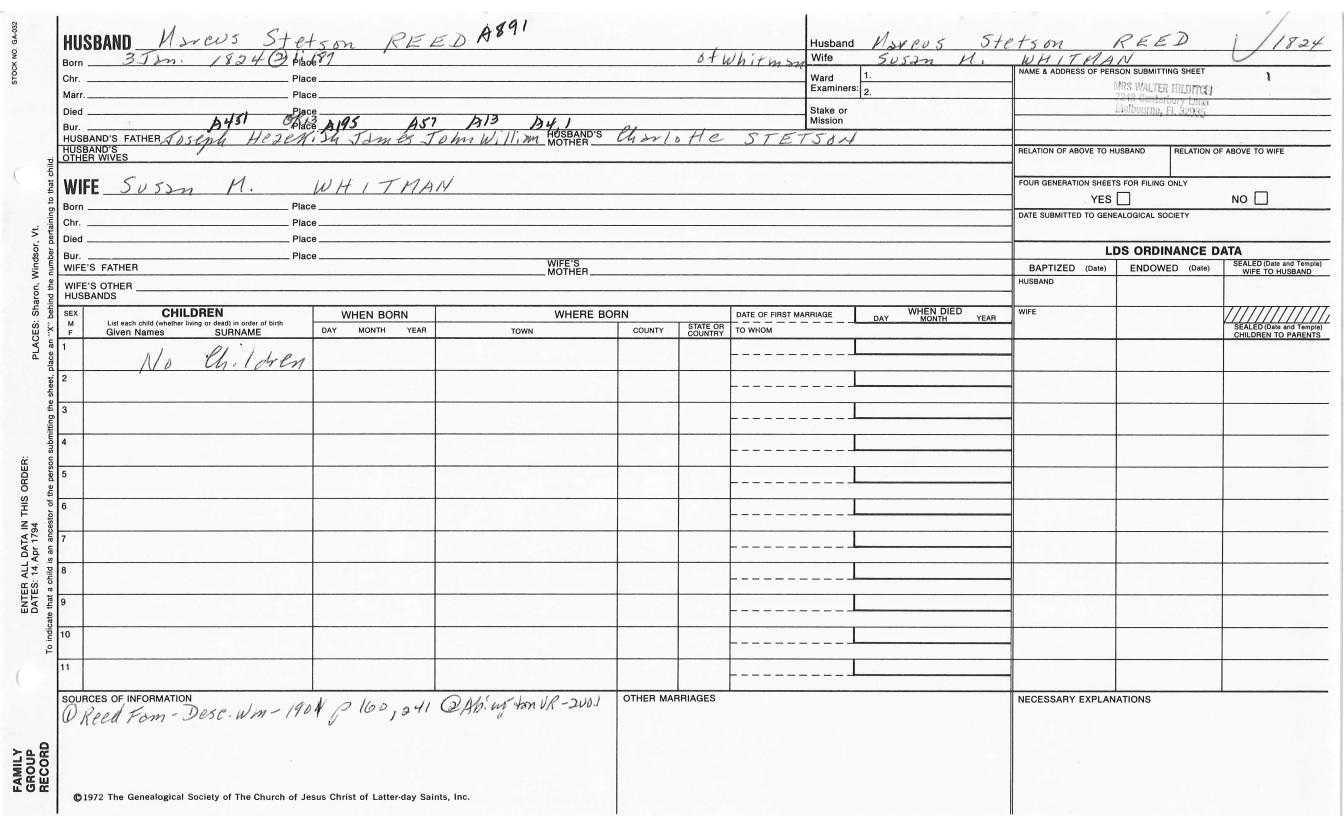 STOCK NO. GA-032
HUSBAND Marcus Stetson REED A891
Born 3 Jan. 1824 ② Place of Whitman
Chr. Place
Marr. Place
Died Place
Bur. Place
A451 A195 A57 A13 A4,1
HUSBAND'S FATHER Joseph Hezekiah James John William HUSBAND'S MOTHER Charlotte STETSON
HUSBAND'S OTHER WIVES
WIFE Susan M. WHITMAN
Born Place
Chr. Place
Died Place
Bur. Place
WIFE'S FATHER WIFE'S MOTHER
WIFE'S OTHER HUSBANDS
Husband Marcus Stetson REED 1824
Wife Susan M. WHITMAN
Ward Examiners: 1.
2.
Stake or Mission
NAME & ADDRESS OF PERSON SUBMITTING SHEET
MRS WALTER HILDITCH
Melbourne, FL
RELATION OF ABOVE TO HUSBAND RELATION OF ABOVE TO WIFE
FOUR GENERATION SHEETS FOR FILING ONLY
YES NO
DATE SUBMITTED TO GENEALOGICAL SOCIETY
LDS ORDINANCE DATA
BAPTIZED (Date) ENDOWED (Date) SEALED (Date and Temple) WIFE TO HUSBAND
HUSBAND
WIFE
SEALED (Date and Temple) CHILDREN TO PARENTS
SEX M F
CHILDREN
List each child (whether living or dead) in order of birth
Given Names SURNAME
WHEN BORN
DAY MONTH YEAR
WHERE BORN
TOWN COUNTY STATE OR COUNTRY
DATE OF FIRST MARRIAGE
TO WHOM
WHEN DIED
DAY MONTH YEAR
1 No Children
2
3
4
5
6
7
8
9
10
11
SOURCES OF INFORMATION
① Reed Fam - Desc. Wm - 1904 p 160, 241 ② Abington VR - 2001
OTHER MARRIAGES
NECESSARY EXPLANATIONS
©1972 The Genealogical Society of The Church of Jesus Christ of Latter-day Saints, Inc.
FAMILY GROUP RECORD
ENTER ALL DATA IN THIS ORDER:
DATES: 14 Apr 1794
PLACES: Sharon, Windsor, Vt.
To indicate that a child is an ancestor of the person submitting the sheet, place an "X" behind the number pertaining to that child.